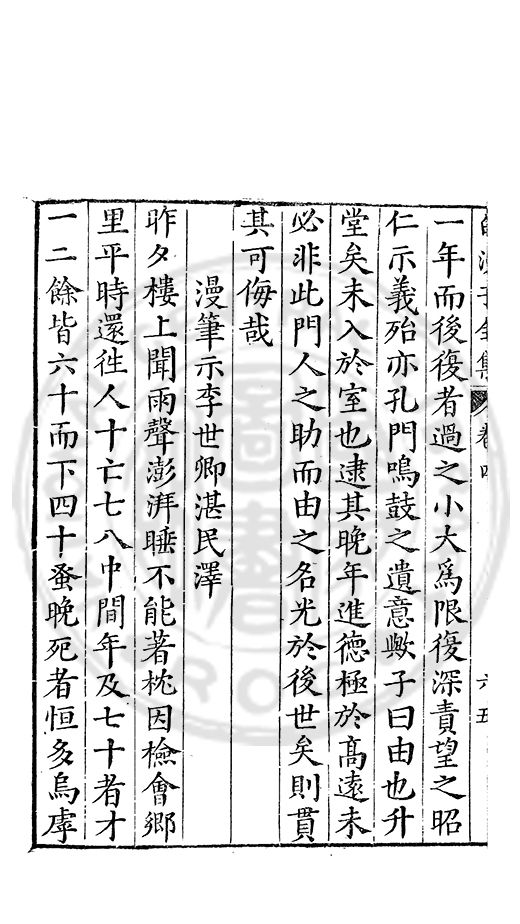 白沙子全集 卷四 六五
一年而後復者過之小大爲限復深責望之昭
仁示義殆亦孔門鳴鼓之遺意歟子曰由也升
堂矣未入於室也逮其晚年進德極於高遠未
必非此門人之助而由之名光於後世矣則貫
其可侮哉
漫筆示李世卿湛民澤
昨夕樓上聞雨聲澎湃睡不能著枕因檢會鄉
里平時還徃人十亡七八中間年及七十者才
一二餘皆六十而下四十蚤晚死者恒多烏虖